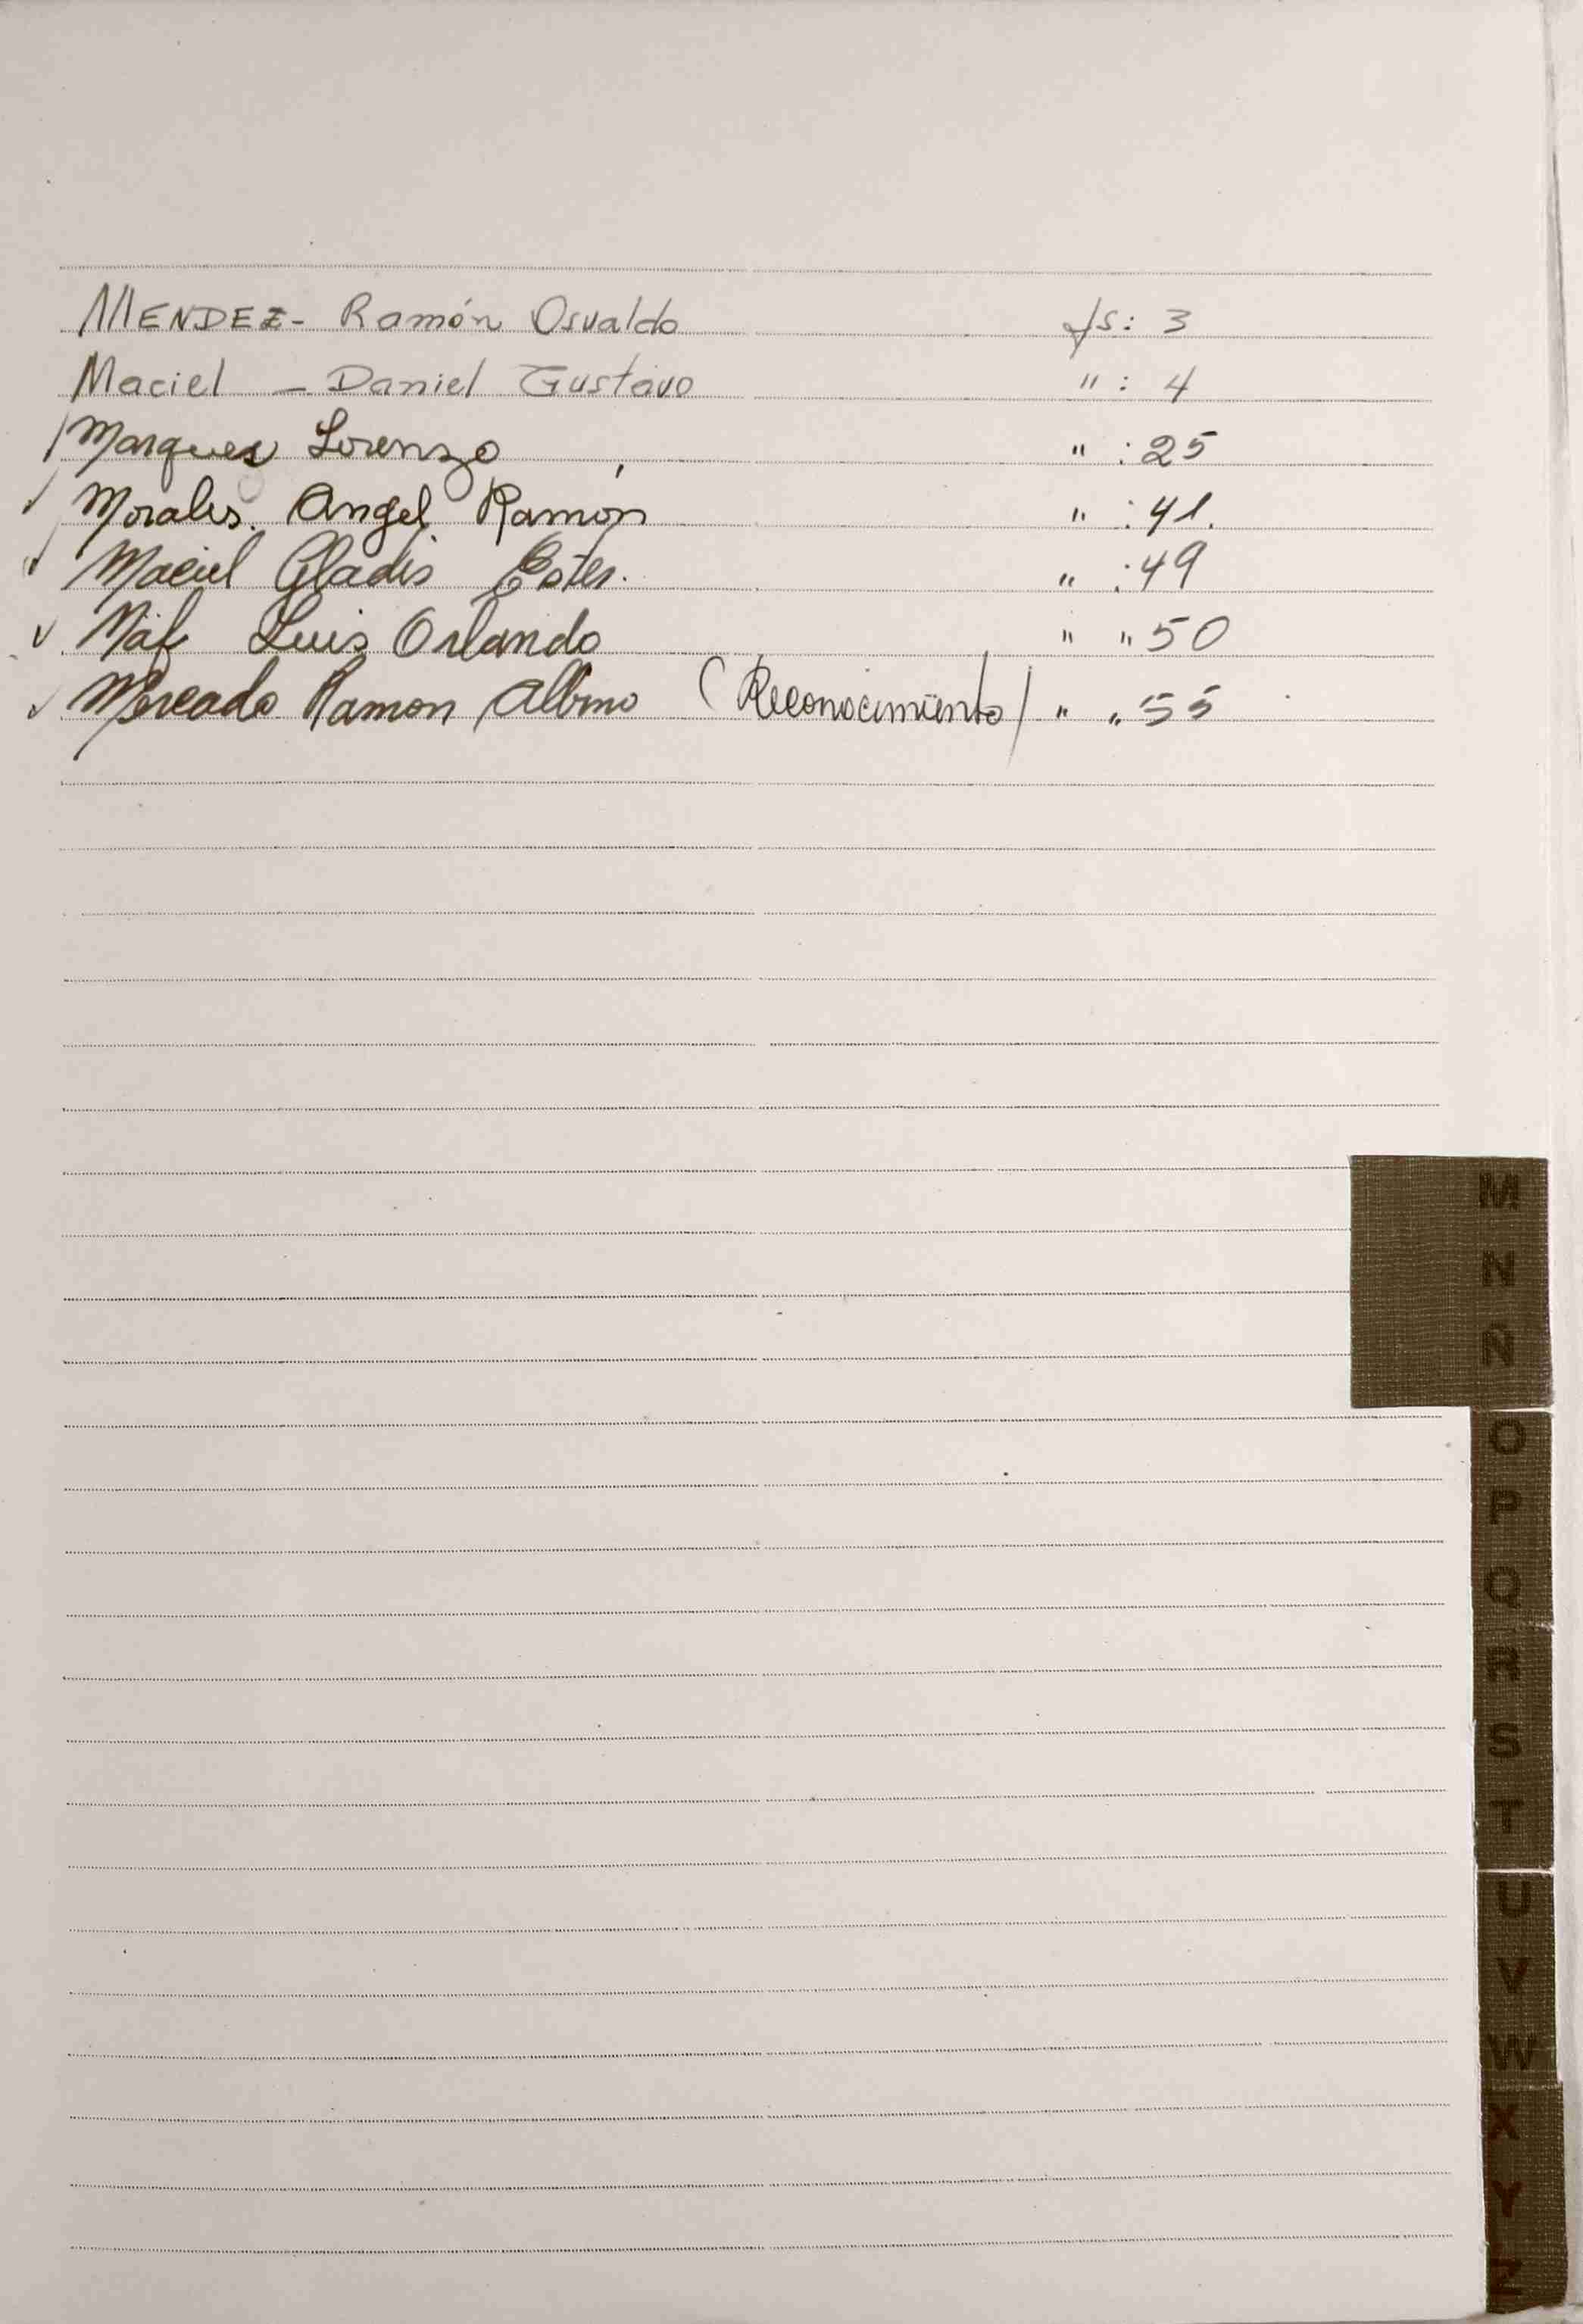 MENDEZ - Ramón Osvaldo fs: 3
Maciel - Daniel Gustavo " : 4
Marques Lorenzo " : 25
✓ Morales. Angel Ramón " : 41.
✓ Maciel Gladis Ester. " : 49
✓ Luis Orlando " " 50
✓ Mercado Ramon Albino (Reconocimiento) " " 55
M
N
Ñ
O
P
Q
R
S
T
U
V
W
X
Y
Z